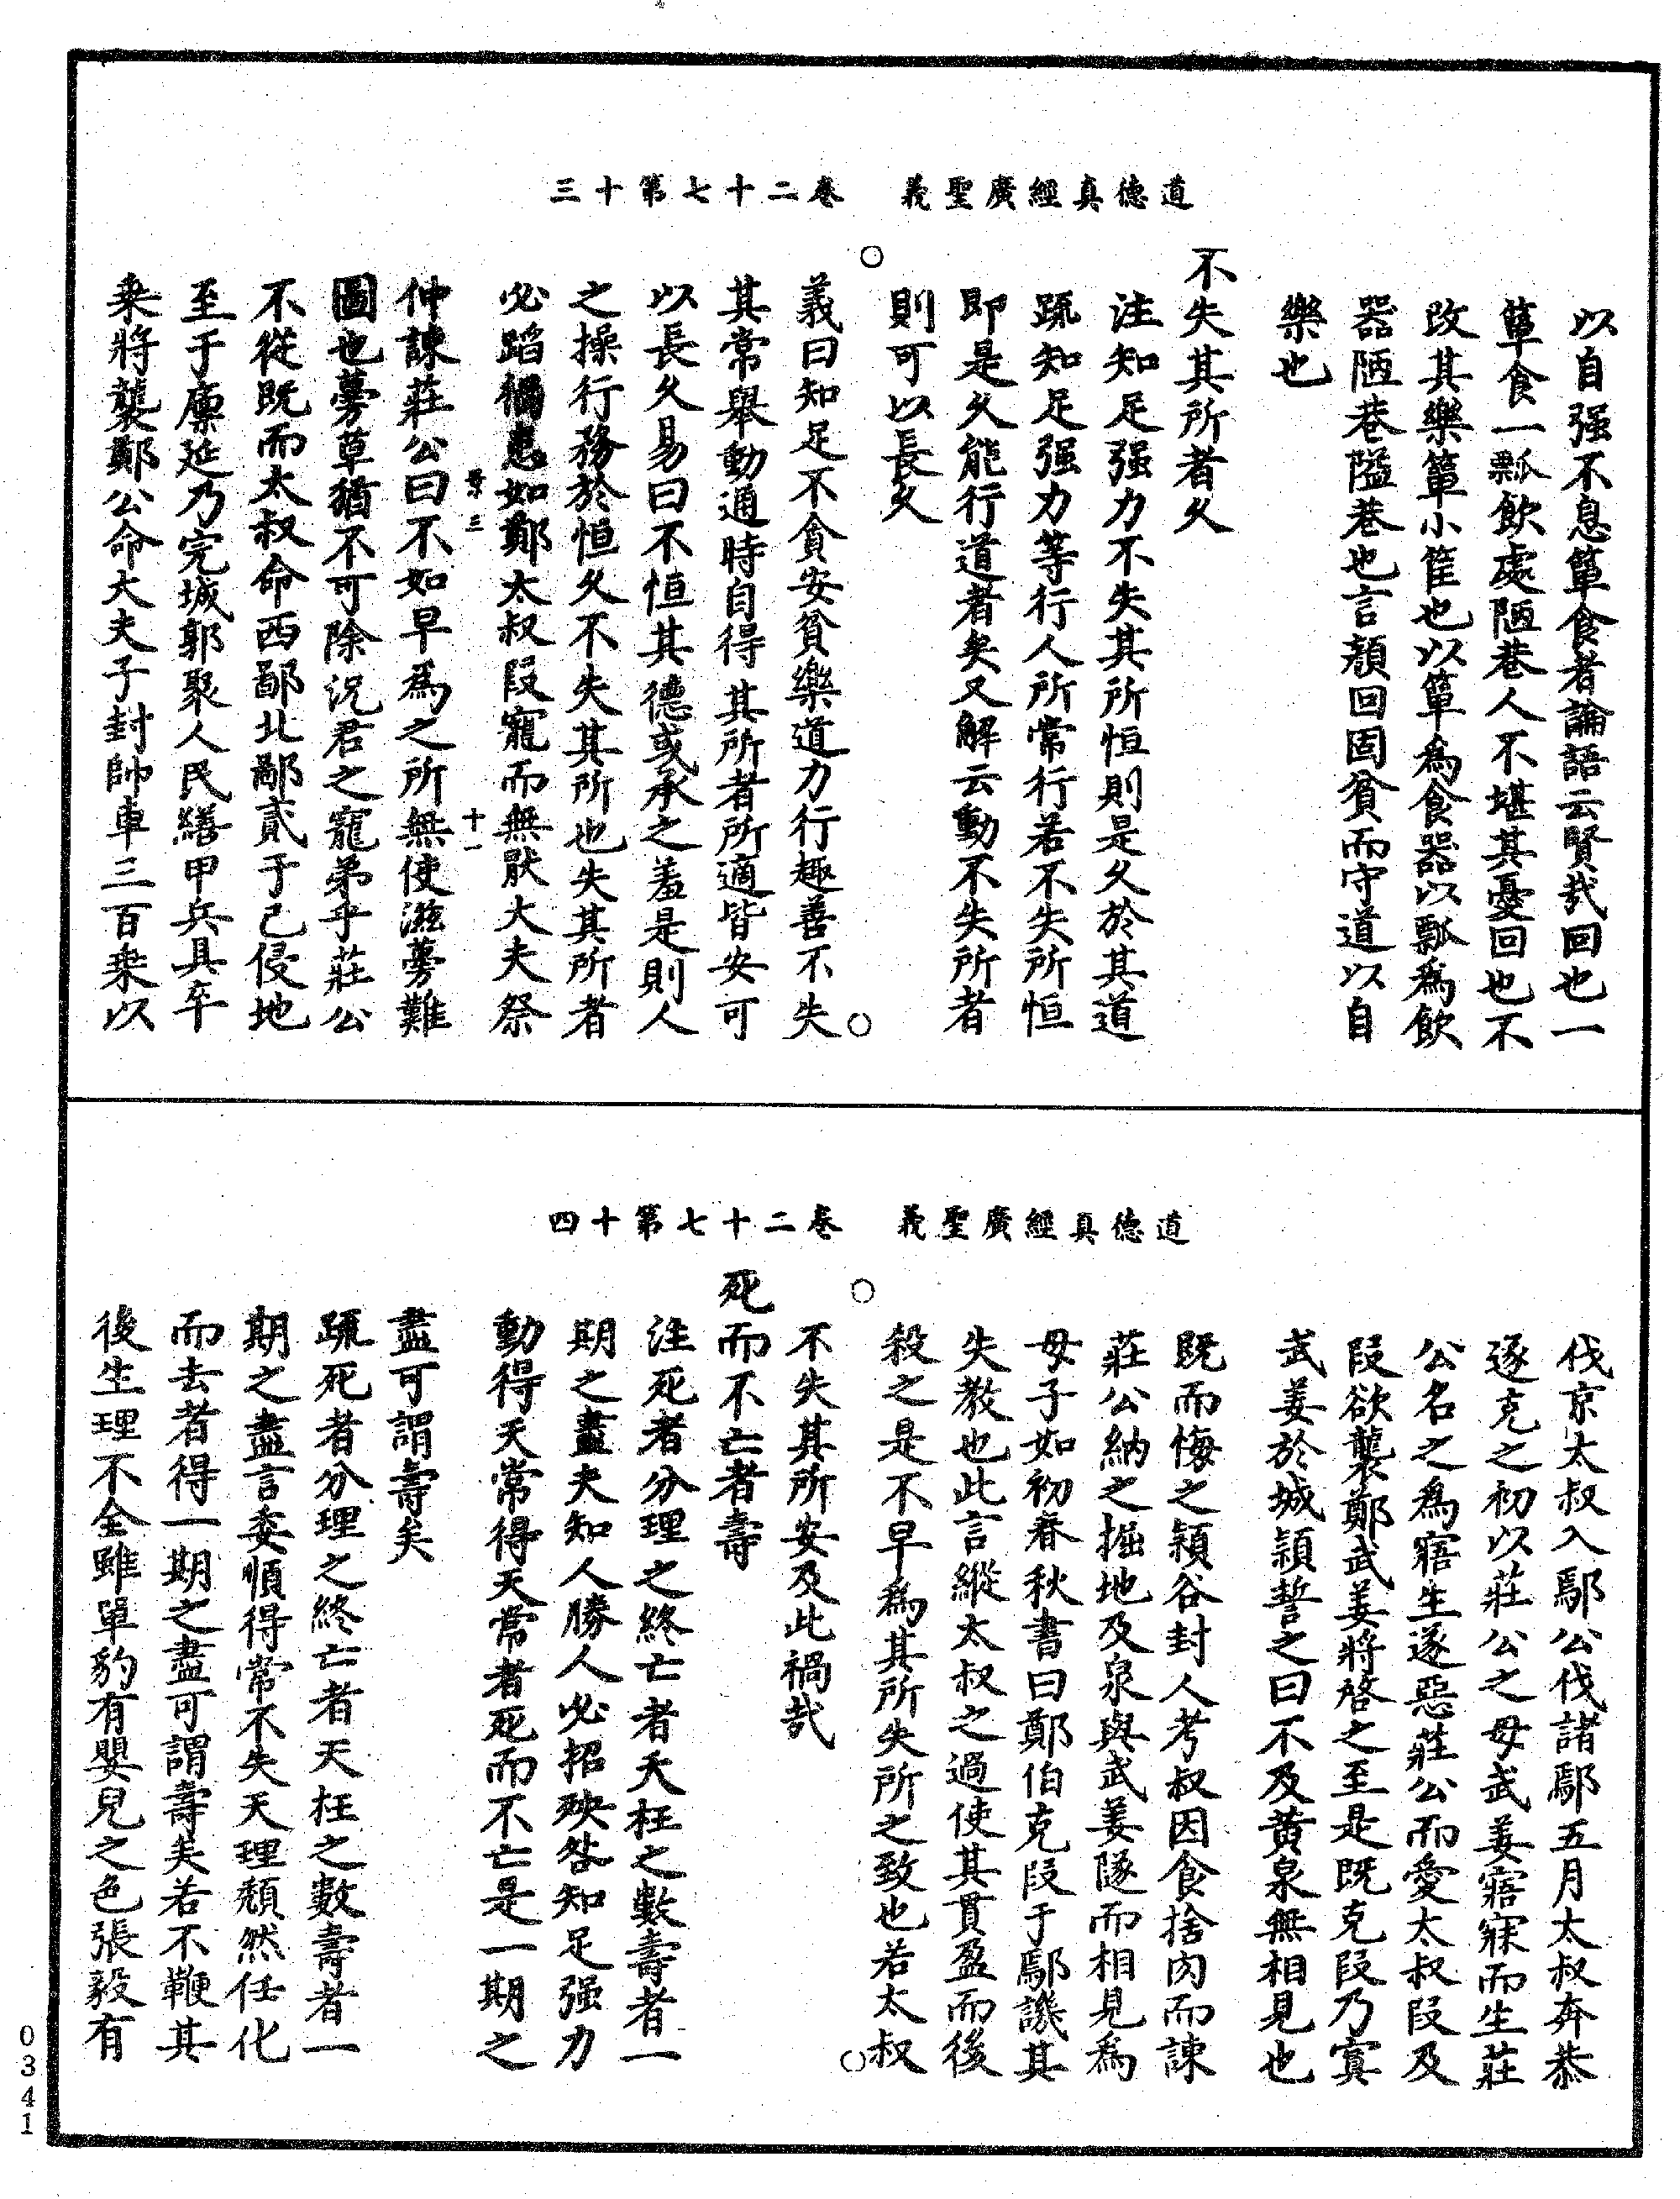 道德真經廣聖義　卷二十七第十三
以自强不息簞食者論語云賢哉回也一
簞食一瓢飲處陋巷人不堪其憂回也不
改其樂簞小筐也以簞爲食器以瓢爲飲
器陋巷隘巷也言顏回固貧而守道以自
樂也
不失其所者久
注知足强力不失其所恒則是久於其道
疏知足强力等行人所常行若不失所恒
即是久能行道者矣又解云動不失所者
則可以長久
義曰知足不貪安貧樂道力行趣善不失
其常舉動通時自得其所者所適皆安可
以長久易曰不恒其德或承之羞是則人
之操行務於恒久不失其所也失其所者
必蹈禍患如鄭太叔段寵而無猒大夫祭
三　十一
仲諫莊公曰不如早爲之所無使滋蔓難
圖也蔓草猶不可除況君之寵弟乎莊公
不從既而太叔命西鄙北鄙貳于己侵地
至于廩延乃完城郭聚人民繕甲兵具卒
乗將襲鄭公命大夫子封帥車三百乗以
道德真經廣聖義　卷二十七第十四
伐京太叔入鄢公伐諸鄢五月太叔奔恭
逐克之初以莊公之母武姜寤寐而生莊
公名之爲寤生遂惡莊公而愛太叔段及
段欲襲鄭武姜將啓之至是既克段乃寘
武姜於城頴誓之曰不及黄泉無相見也
既而悔之頴谷封人考叔因食捨肉而諫
莊公納之掘地及泉與武姜隧而相見爲
母子如初春秋書曰鄭伯克段于鄢譏其
失教也此言縱太叔之過使其貫盈而後
殺之是不早爲其所失所之致也若太叔
不失其所安及此禍哉
死而不亡者壽
注死者分理之終亡者夭枉之數壽者一
期之盡夫知人勝人必招殃咎知足强力
動得天常得天常者死而不亡是一期之
盡可謂壽矣
疏死者分理之終亡者夭枉之數壽者一
期之盡言委順得常不失天理頹然任化
而去者得一期之盡可謂壽矣若不鞭其
後生理不全雖單豹有嬰兒之色張毅有
0341